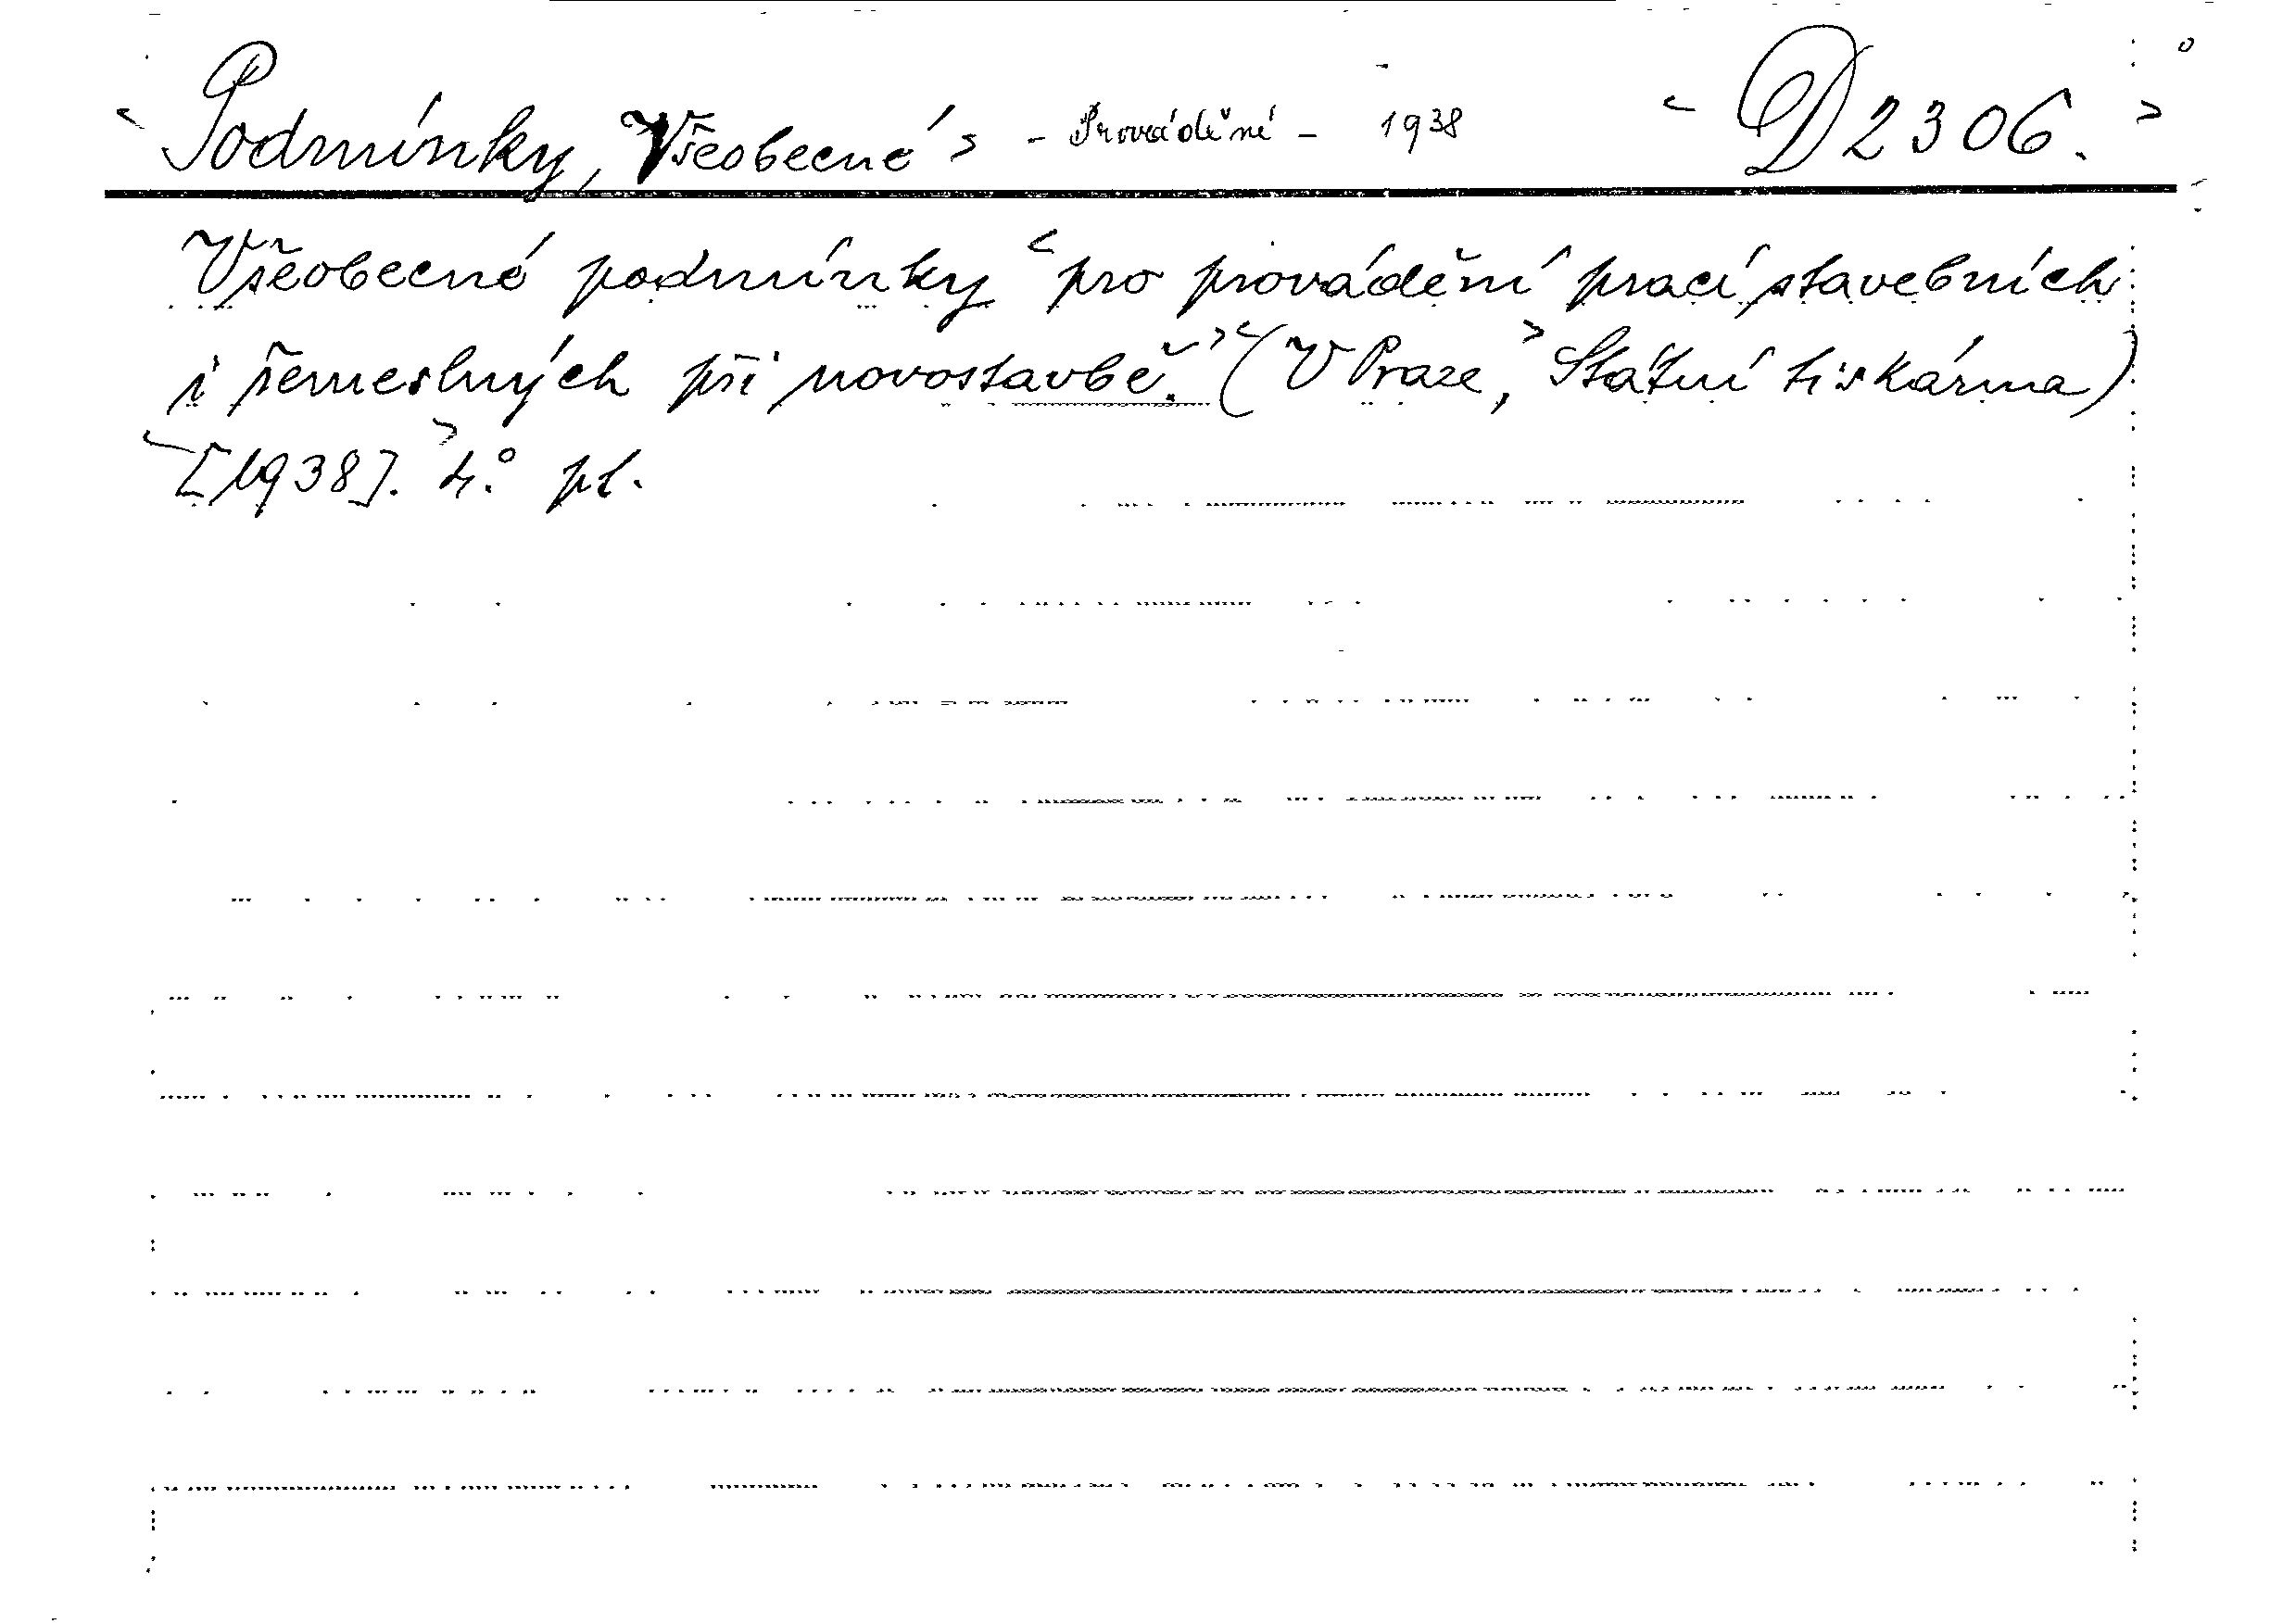 Podmínky, Všeobecné - Provádění - 1938 D 2306.
Všeobecné podmínky pro provádění prací stavebních
i řemeslných při novostavbě. (V Praze, Státní tiskárna)
[1938]. 4.° pl.